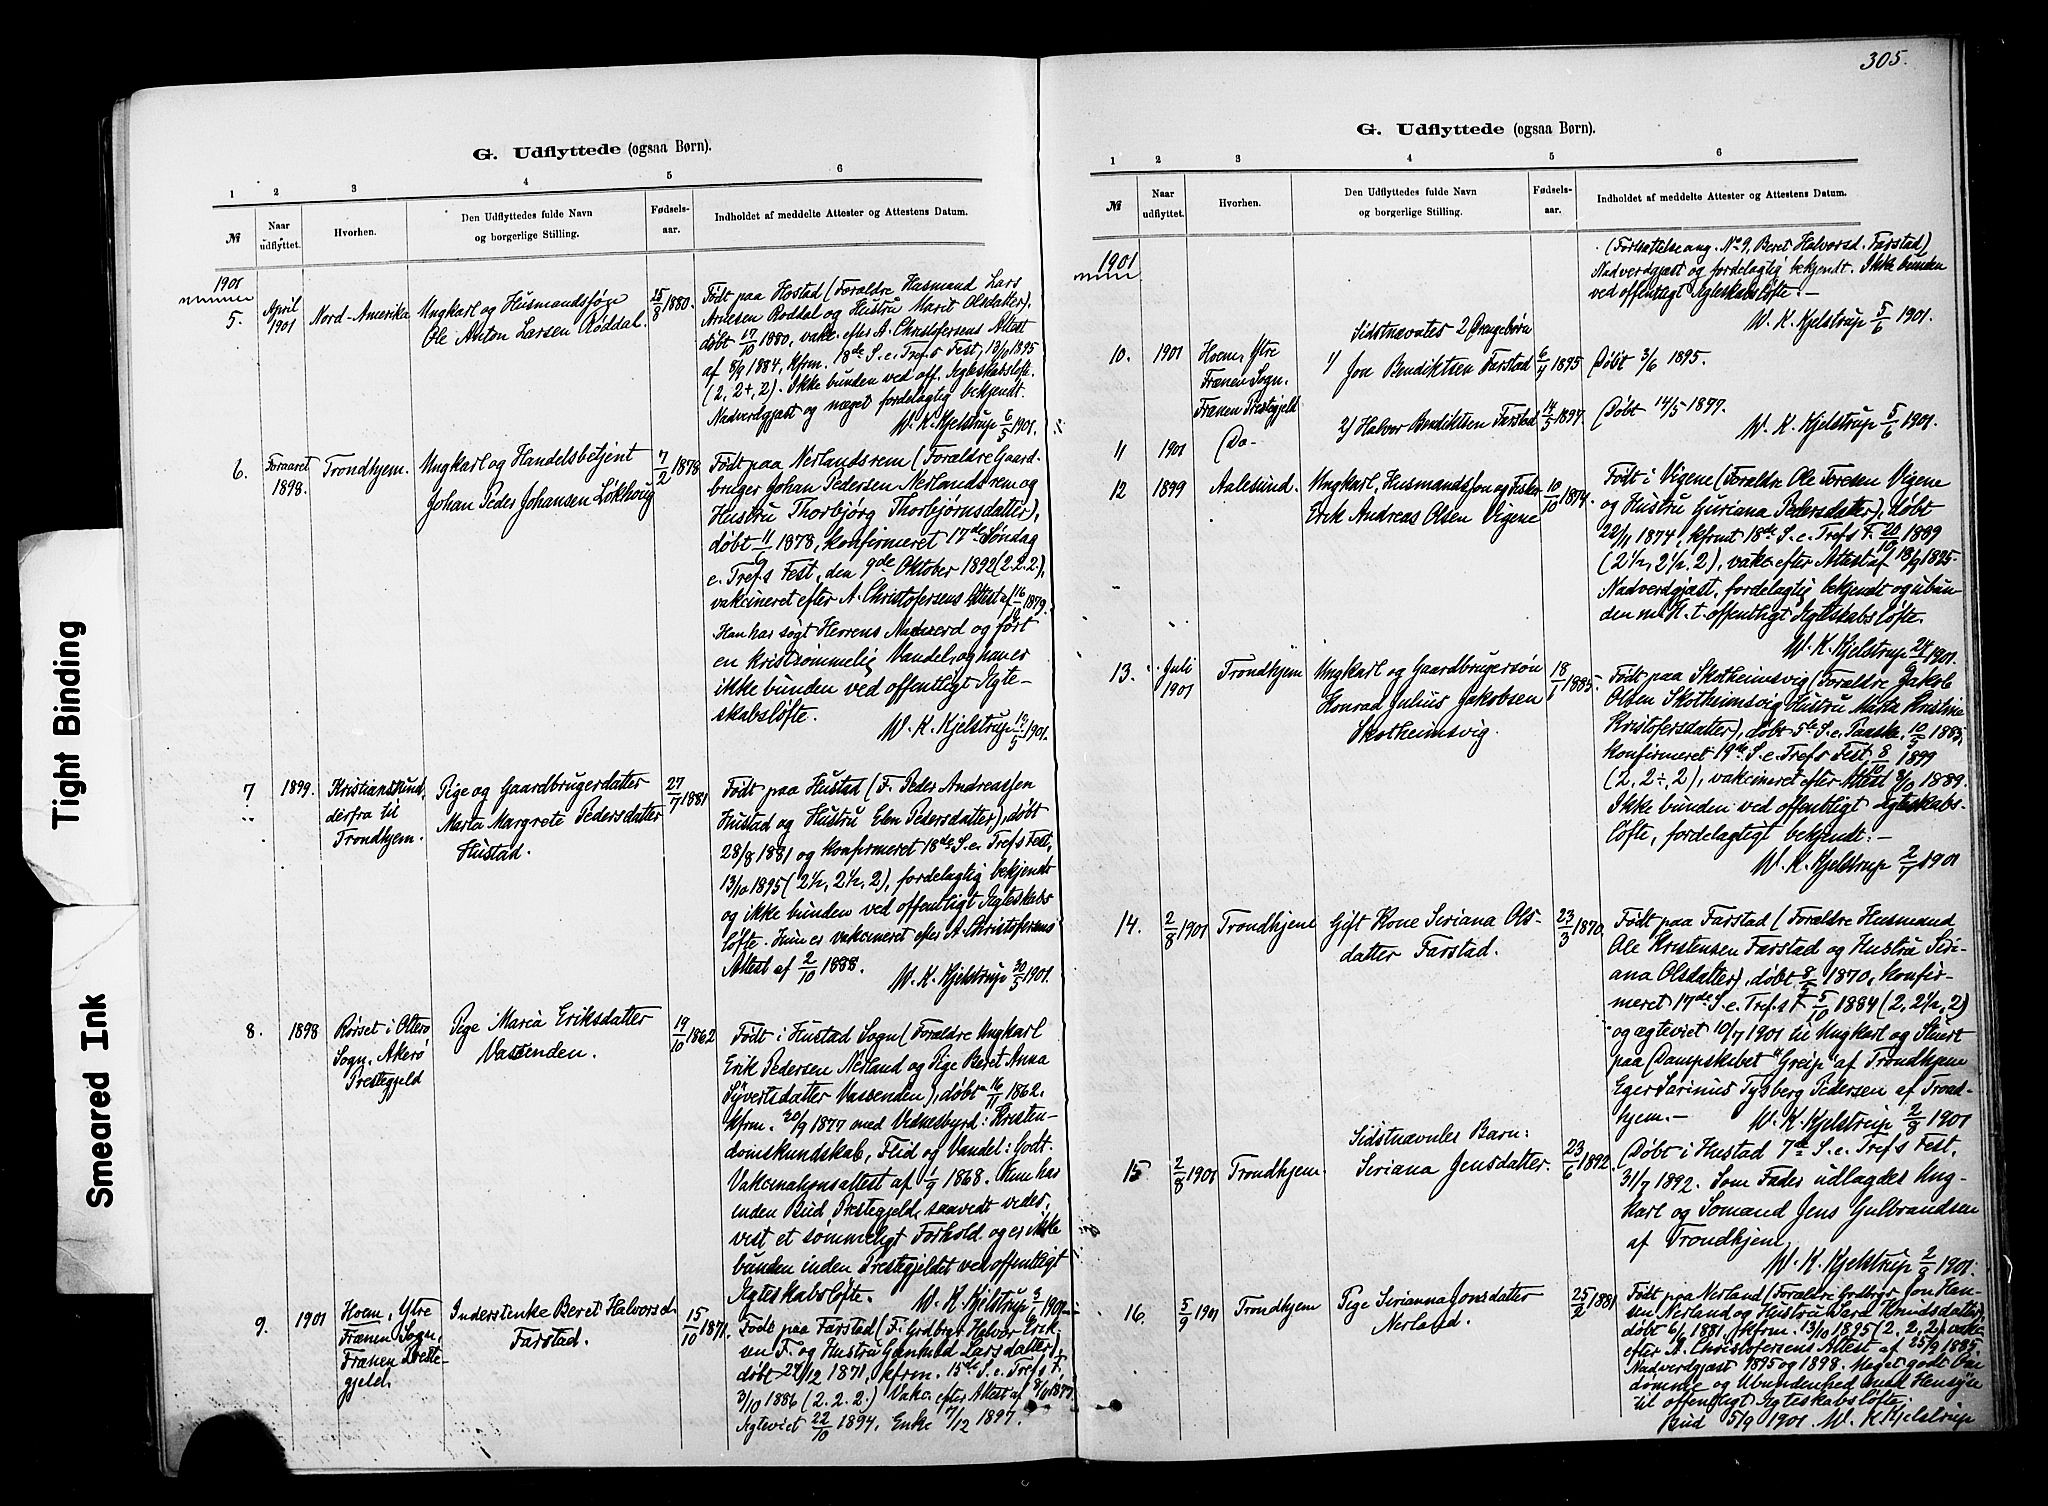 305.
G. Udflyttede (ogsaa Børn).
1 2 3 4 5 6
№
Naar udflyttet.
Hvorhen.
Den Udflyttedes fulde Navn
og borgerlige Stilling.
Fødsels-
aar.
Indholdet af meddelte Attester og Attestens Datum.
1901
5.
April
1901
Nord-Amerika
Ungkarl og Husmandsføge
Ole Anton Larsen Røddal.
25/8 1880.
Født paa Hostad (Forældre Husmand Lars
Arnesen Røddal og Hustru Marit Olsdatter).
døbt 17/10 1880, vakc. efter A. Christofersens Attest
af 8/9 1884, kfrm. 18de S. e. Tref.s Fest, 13/10 1895
(2, 2+, 2). Ikke bunden ved off. Ægteskabsløft.
Nadverdgjæst og meget fordelagtig bekjendt.
W. K. Kjelstrup 6/5 1901.
6.
Foraaret
1898.
Trondhjem.
Ungkarl og Handelsbetjent
Johan Peder Johansen Løkhoug
7/2 1878
Født paa Nerlandsrem (Forældre Gaard-
bruger Johan Pedersen Nerlandsrem og
Hustru Thorbjørg Thorbjørnsdatter),
døbt 11/ 1878, konfirmeret 17de Søndag
e. Tref.s Fest, den 9de Oktober 1892 (2.2.2),
vakcineret efter A. Christofersens Attest af 16/10 1879.
Han har søgt Herrens Nadverd og ført
en kristsømmelig Vandel, og han er
ikke bunden ved offentligt Ægte-
skabsløfte.
W. K. Kjelstrup 19/5 1901.
7
1899.
Kristianssund,
derfra til
Trondhjem.
Pige og Gaardbrugerdatter
Marta Margrete Pedersdatter
Hustad.
27/7 1881
Født paa Hustad (F. Peder Andreassen
Hustad og Hustru Elen Pedersdatter), døbt
28/8 1881 og konfirmeret 18de S. e. Tref.s Fest,
13/10 1895 (2½, 2½, 2), fordelagtig bekjendt
og ikke bunden ved offentligt Ægteskabs
løfte. Hun er vakcineret efter A. Christofersens
Attest af 2/10 1888.
W. K. Kjelstrup 30/5 1901.
8.
1898
Rørset i Otterø
Sogn, Akerø
Prestegjeld
Pige Maria Eriksdatter
Vassenden.
19/10 1862
Født i Hustad Sogn (Forældre Ungkarl
Erik Pedersen Nerland og Pige Beret Anna
Syvertsdatter Vassenden), døbt 16/11 1862.
kfrm. 30/9 1877 med Vidnesbyrd: Kristen-
domskundskab, Flid og Vandel: Godt.
Vakcinationsattest af 1/9 1868. Hun har
inden Bud Prestegjeld, saavidt vides,
vist et sømmeligt Forhold og er ikke
bunden inden Prestegjeldet ved offentligt
Ægteskabsløfte.
W. K. Kjelstrup 1901.
9.
1901
Hoem, Ytre
Frænen Sogn,
Frænen Preste-
gjeld.
Inderstenke Beret Halvorsd.
Farstad.
15/10 1871.
Født paa Farstad (F. Grdbrgr. Halvor Erik-
sen F. og Hustru Gunhild Larsdatter),
døbt 22/12 1871, kfrm. 15de S. e. Tref.s F.,
3/10 1886 (2. 2. 2.) Vakc. efter Attest af 8/ 1877.
Ægteviet 22/10 1894. Enke 7/12 1897.
G. Udflyttede (ogsaa Børn).
1 2 3 4 5 6
№
Naar udflyttet.
Hvorhen.
Den Udflyttedes fulde Navn
og borgerlige Stilling.
Fødsels-
aar.
Indholdet af meddelte Attester og Attestens Datum.
1901
(Fortsættelse ang. No 9, Beret Halvorsd. Farstad)
Nadverdgjæst og fordelagtig bekjendt. Ikke bunden
ved offentligt Ægteskabsløfte.—
W. K. Kjelstrup 5/6 1901.
10.
1901
Hoem, Ytre
Frænen Sogn.
Frænen Prestegjeld
Sidstnævntes 2 Drengebørn
1/ Jon Bendiktsen Farstad
6/4 1895
Døbt 3/6 1895.
11
1901
Do-
2/ Halvor Bendiktsen Farstad
14/5 1897
Døbt 14/5 1897.
W. K. Kjelstrup 5/6 1901.
12
1899
Aalesund.
Ungkarl, Husmandssøn og Fisker
Erik Andreas Olsen Vigene
10/10 1874.
Født i Vigene (Forældre Ole Toresen Vigene
og Hustru Guriana Pedersdatter), døbt
22/11 1874, kfrmt 18de S. e. Tref.s F. 20/10 1889
(2½, 2½. 2), vakc. efter Attest af 18/9 1885.
Nadverdgjæst, fordelagtig bekjendt og ubun-
den m. H. t. offentligt Ægteskabsløfte.
W. K. Kjelstrup 24/6 1901.
13.
Juli
1901
Trondhjem
Ungkarl og Gaardbrugersøn
Konrad Julius Jakobsen
Skotheimsvig.
18/1 1885.
Født paa Skotheimsvig (Forældre Jakob
Olsen Skotheimsvig Hustru Marta Kristine
Kristofersdatter), døbt 5te S. e. Paaske 10/5 1885,
konfirmeret 19de S. e. Tref.s Fest 8/10 1899
(2, 2÷, 2), vakcineret efter Attest 3/10 1889.
Ikke bunden ved offentligt Ægteskabs-
løfte, fordelagtigt bekjendt.—
W. K. Kjelstrup 2/7 1901
14.
2/8 1901
Trondhjem
Gift Kone Seriana Ols-
datter Farstad.
23/3 1870.
Født paa Farstad (Forældre Husmand
Ole Kristensen Farstad og Hustru Seri-
ana Olsdatter), døbt 8/5 1870, konfir-
meret 17de S. e. Tref.s F. 5/10 1884 (2, 2½, 2)
og ægteviet 10/7 1901 til Ungkarl og Stuert
paa Dampskibet "Greip" af Trondhjem
Eger Sarinus Tysberg Pedersen af Trond-
hjem.—
W. K. Kjelstrup 2/8 1901
15
2/8 1901
Trondhjem.
Sidstnævntes Barn:
Seriana Jensdatter.
23/6 1892.
Døbt i Hustad 7de S. e. Tref.s Fest,
31/7 1892. Som Fader udlagdes Ung-
karl og Sømand Jens Gulbrandsen
af Trondhjem
W. K. Kjelstrup 2/8 1901.
16.
5/9 1901
Trondhjem
Pige Serianna Jonsdatter
Nerland.
25/2 1881
Født paa Nerland (Forældre Grdbrgr. Jon Han-
sen Nerland og Hustru Sara Knudsdatter),
døbt 6/ 1881. kfrm. 13/10 1895 (2. 2. 2) vakc.
efter A. Christofersens Attest af 25/9 1885.
Nadverdgjæst 1895 og 1898. Meget godt Om-
dømme og Ubundenhed med Hensyn
til offentligt Ægteskabsløfte.
Bud 5/9 1901. W. K. Kjelstrup
Tight Binding
Smeared Ink